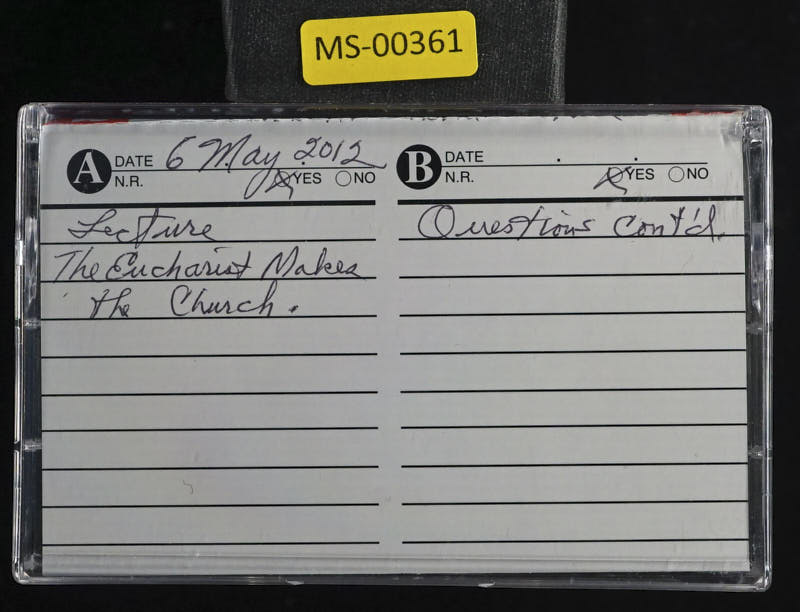 MS-00361
A DATE 6 May 2012
N.R. YES NO
Lecture
The Eucharist Makes
the Church.
B DATE
N.R. YES NO
Questions Cont'd.